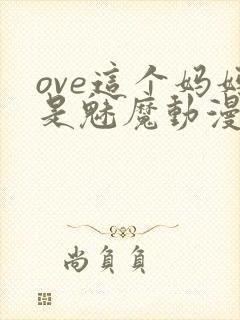 ove這个妈妈
是魅魔動漫
尚負負